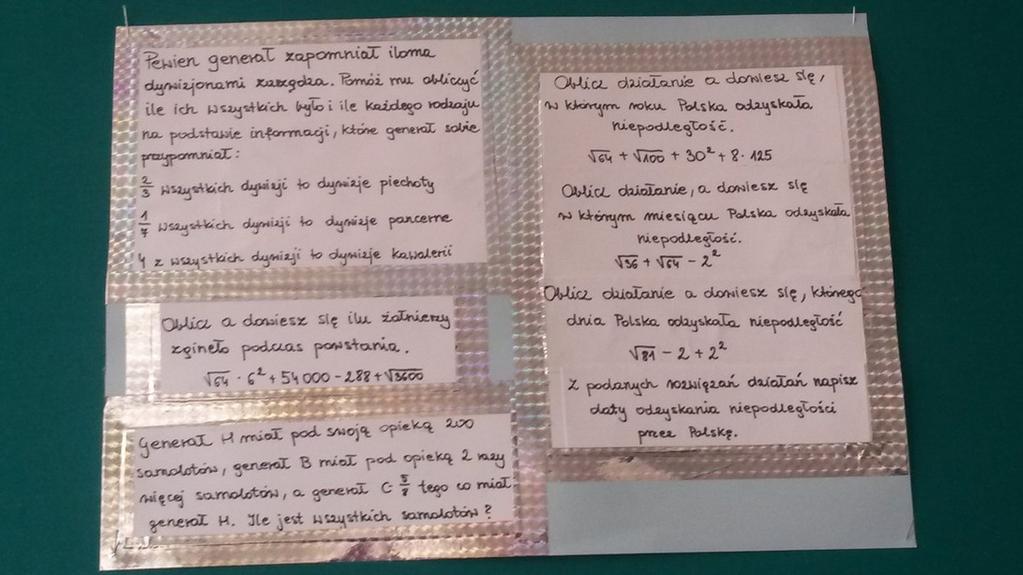 Pewien generał zapomniał iloma
dywizjonami zarządza. Pomóż mu obliczyć
ile ich wszystkich było i ile każdego rodzaju
na podstawie informacji, które generał sobie
przypomniał:
2/3 wszystkich dywizji to dywizje piechoty
1/7 wszystkich dywizji to dywizje pancerne
4 z wszystkich dywizji to dywizje kawalerii
Oblicz a dowiesz się ilu żołnierzy
zginęło podczas powstania.
√64 · 6² + 54 000 - 288 + √3600
Generał H miał pod swoją opieką 200
samolotów, generał B miał pod opieką 2 razy
więcej samolotów, a generał C 5/8 tego co miał
generał H. Ile jest wszystkich samolotów?
Oblicz działanie a dowiesz się,
w którym roku Polska odzyskała
niepodległość.
√64 + √100 + 30² + 8 · 125
Oblicz działanie, a dowiesz się
w którym miesiącu Polska odzyskała
niepodległość.
√36 + √64 - 2²
Oblicz działanie a dowiesz się, którego
dnia Polska odzyskała niepodległość
√81 - 2 + 2²
Z podanych rozwiązań działań napisz
datę odzyskania niepodległości
przez Polskę.